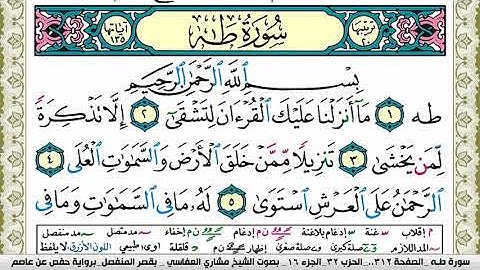 ترتيبها ٢٠
سُورَةُ طه
آياتها ١٣٥
بِسْمِ ٱللَّهِ ٱلرَّحْمَٰنِ ٱلرَّحِيمِ
طه ١ مَآ أَنزَلْنَا عَلَيْكَ ٱلْقُرْءَانَ لِتَشْقَىٰٓ ٢ إِلَّا تَذْكِرَةً
لِّمَن يَخْشَىٰ ٣ تَنزِيلًا مِّمَّنْ خَلَقَ ٱلْأَرْضَ وَٱلسَّمَٰوَٰتِ ٱلْعُلَى ٤
ٱلرَّحْمَٰنُ عَلَى ٱلْعَرْشِ ٱسْتَوَىٰ ٥ لَهُۥ مَا فِى ٱلسَّمَٰوَٰتِ وَمَا فِى
م إقلاب س غنة س إدغام بلاغنة ن م إدغام ن م إخفاء مد متصل مد منفصل
المد اللازم صلة كبرى وے صلة صغرى ن م إظهار قلقلة اوى طبيعي اللون الأزرق لا يلفظ
سورة طـه _ الصفحة ٣١٢ .. الحزب ٣٢ _ الجزء ١٦ _ بصوت الشيخ مشاري العفاسي _ بقصر المنفصل برواية حفص عن عاصم